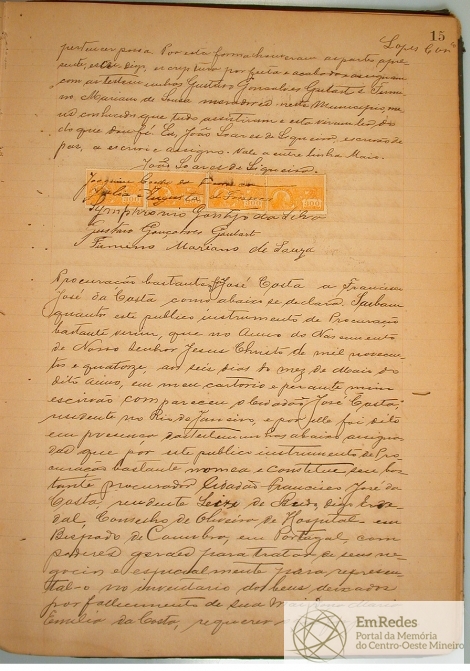 15
Lopes Con
pertencer possa. Por esta forma houveram as partes apre
sente, este digo, escriptura por feita e acabada e assignam
com as testemunhas Gustavo Gonçalves Goulart e Firmi
no Mariano de Souza moradores neste Municipio, me
us conhecidos que tudo assistiram e esta viram ler, do
do que dou fé. Eu, João Soares de Siqueira, escrivão de
paz, a escrevi e assigno. Vale a entre linha Mais.
João Soares de Siqueira.
Joaquim
Augusta de
Symphronio Gontijo da Silva
Gustavo Gonçalves Goulart
Firmino Mariano de Souza
Procuração bastante José Costa a Francisco
José da Costa como abaixo se declara. Saibam
quanto este publico instrumento de Procuração
bastante virem, que no Anno do Nascimento
de Nosso Senhor Jesus Christo de mil novecen-
tos e quatorze, aos seis dias do mez de Maio do
dito Anno, em meu cartorio e perante mim
escrivão compareceu o Cidadão José Costa,
residente no Rio de Janeiro, e por elle foi dito
em presença das testemunhas abaixo assigna
das que por este publico instrumento de Pro
curação bastante nomea e constitue seu bas
tante procurador Cidadão Francisco José da
Costa, residente digo Erve
dal, Conselho de Oliveira do Hospital em
Bispado de Coimbra, em Portugal, com
poderes geraes para tratar de seus ne-
gocios e especialmente para represen-
tal-o no inventario dos bens deixados
por fallecimento de sua Mãe Dona Maria
Emilia da Costa, requerer
EmRedes
Portal da Memória
do Centro-Oeste Mineiro